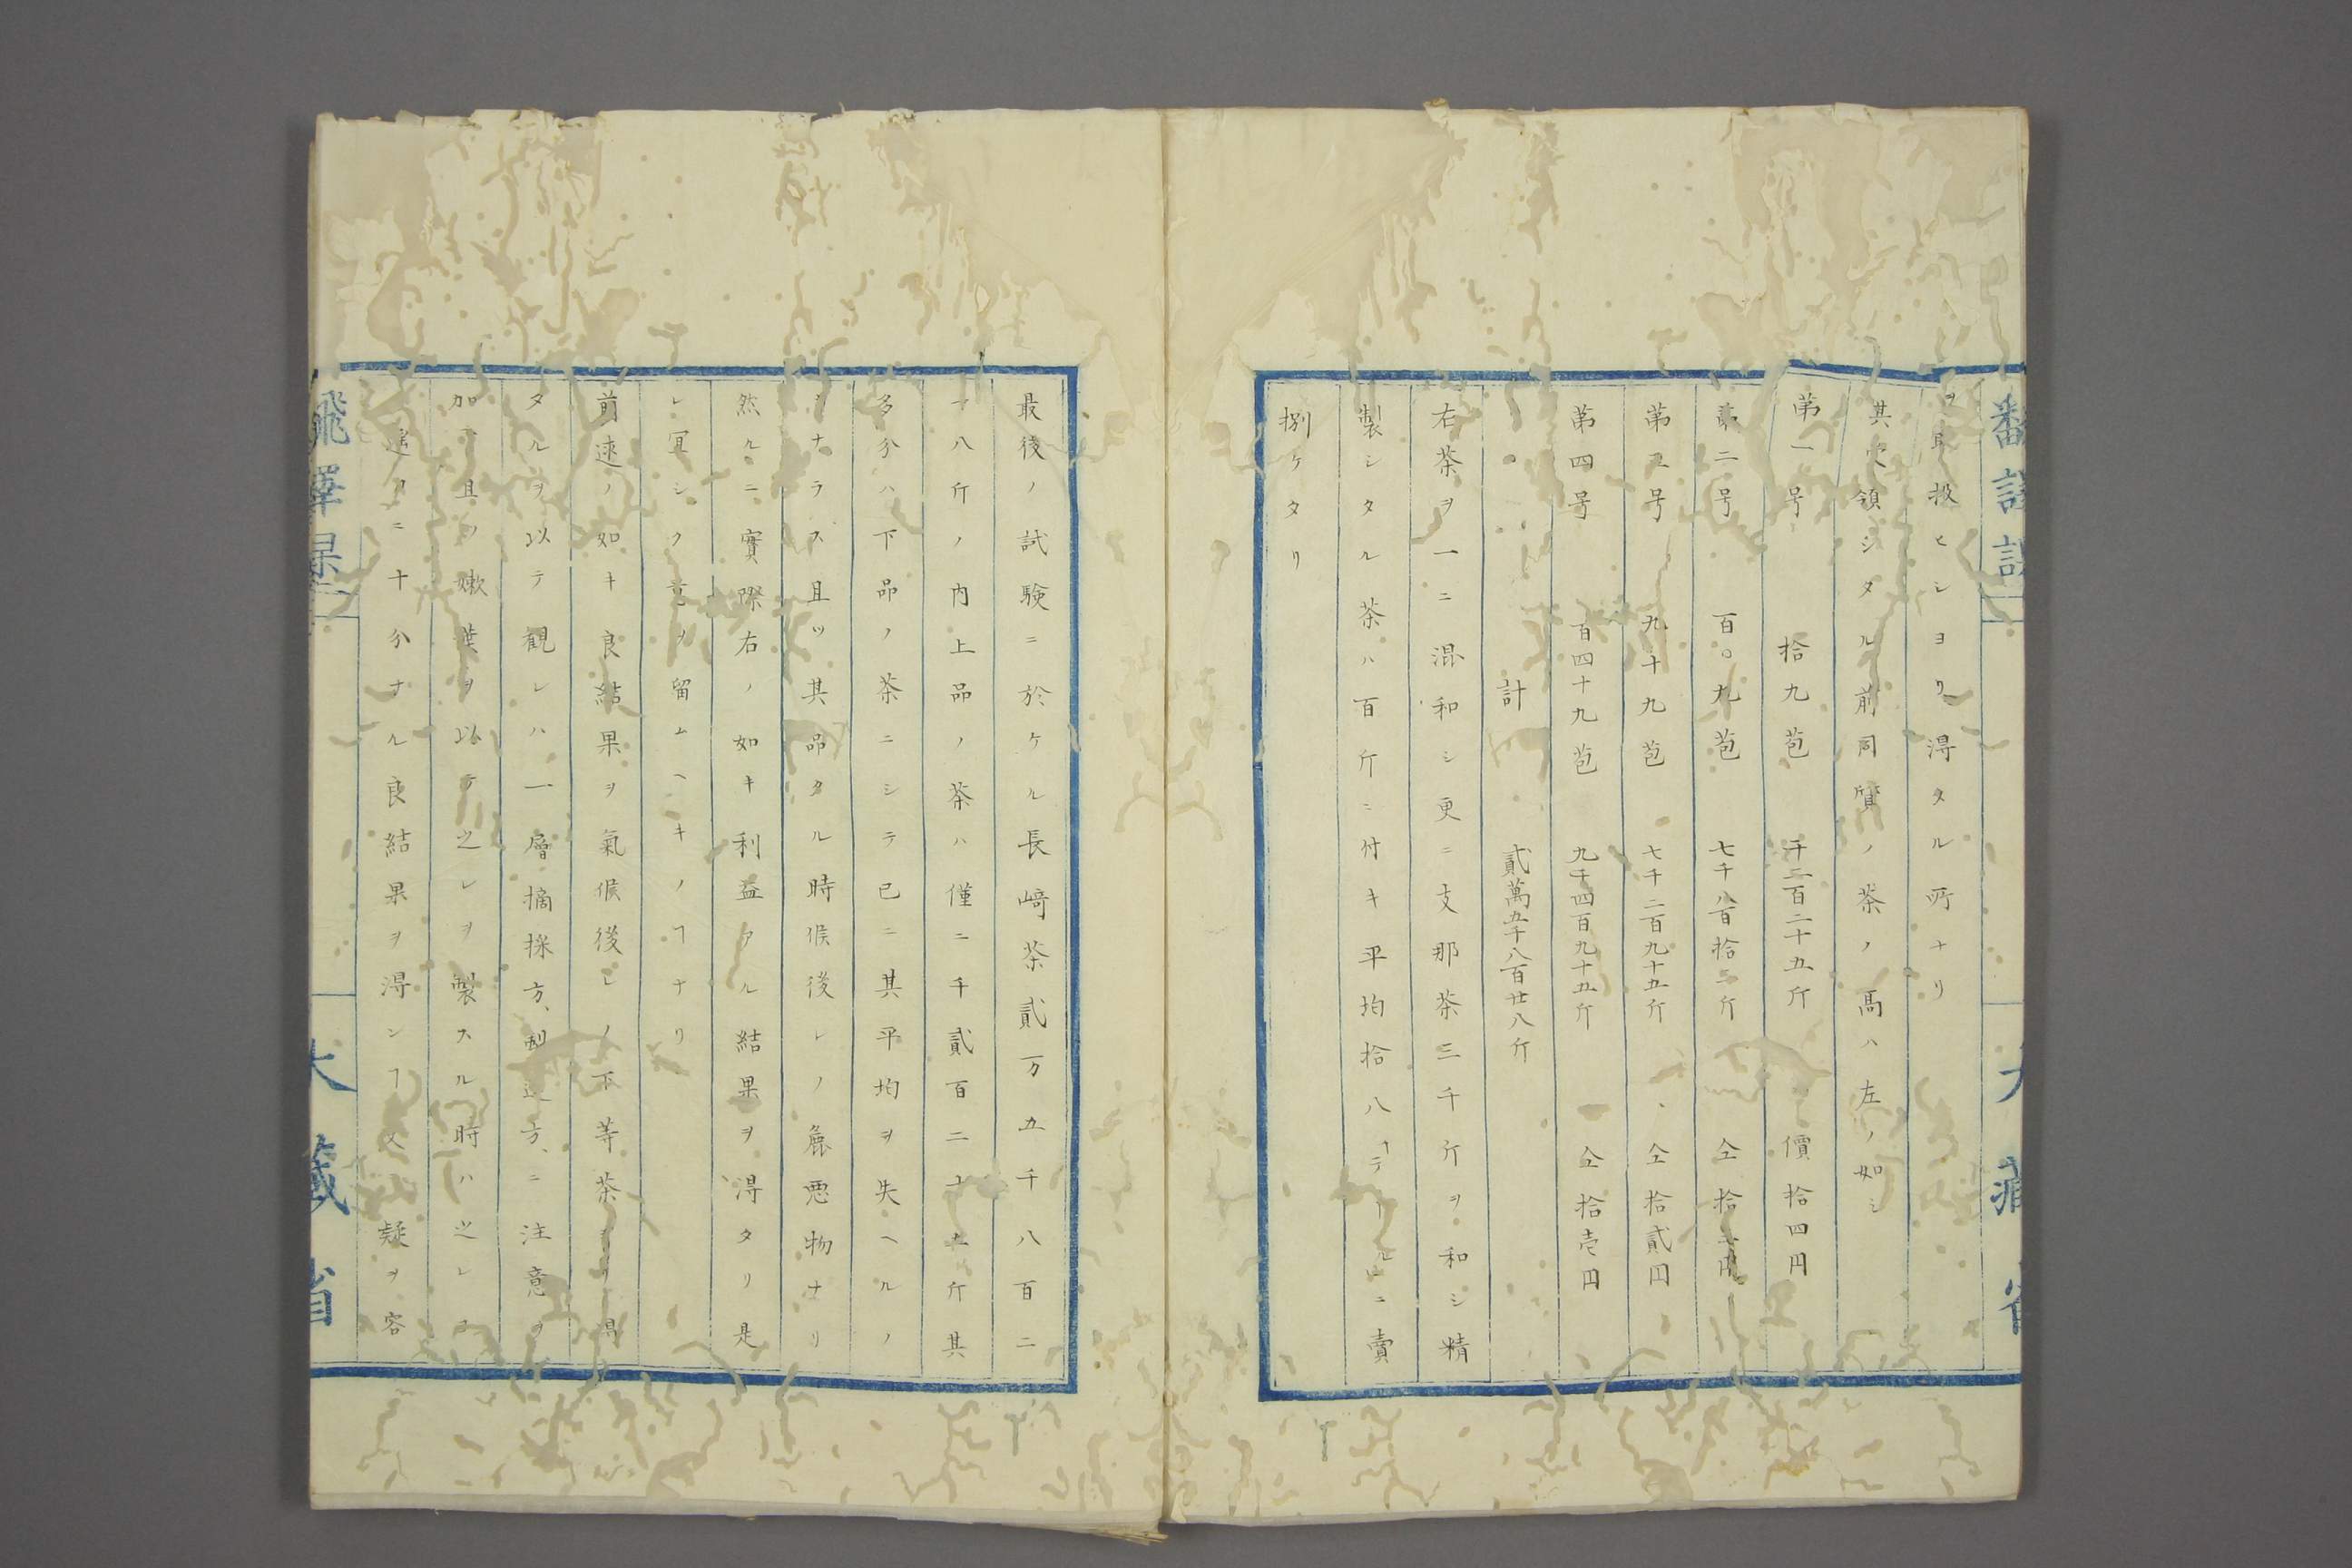 ヲ取扱ヒシヨリ得タル所ナリ
其次領シタル前同質ノ茶ノ高ハ左ノ如シ
第一号 拾九苞 千二百二十五斤 價拾四円
第二号 百〇九苞 七千八百拾三斤 仝拾三円
第三号 九十九苞 七千二百九十五斤 仝拾貳円
第四号 百四十九苞 九千四百九十五斤 仝拾壱円
計 貳萬五千八百廿八斤
右茶ヲ一ニ混和シ更ニ支那茶三千斤ヲ和シ精
製シタル茶ハ百斤ニ付キ平均拾八 ニ賣
捌ケタリ
最後ノ試験ニ於ケル長﨑茶貳万五千八百二
十八斤ノ内上品ノ茶ハ僅ニ千貳百二十五斤其
多分ハ下品ノ茶ニシテ已ニ其平均ヲ失ヘルノ
ミナラス且ツ其品タル時候後レノ麁悪物ナリ
然ルニ實際右ノ如キ利益アル結果ヲ得タリ是
レ冝シク意ヲ留ムヘキノヿナリ
前述ノ如キ良結果ヲ氣候後レノ下等茶ヨリ得
タルヲ以テ観レハ一層摘採方、製造方、ニ注意ヲ
加ヘ且ツ嫩葉ヲ以テ之レヲ製スル時ハ之レヨ
十分ナル良結果ヲ得ンヿ又疑ヲ容
飜譯課
大藏省